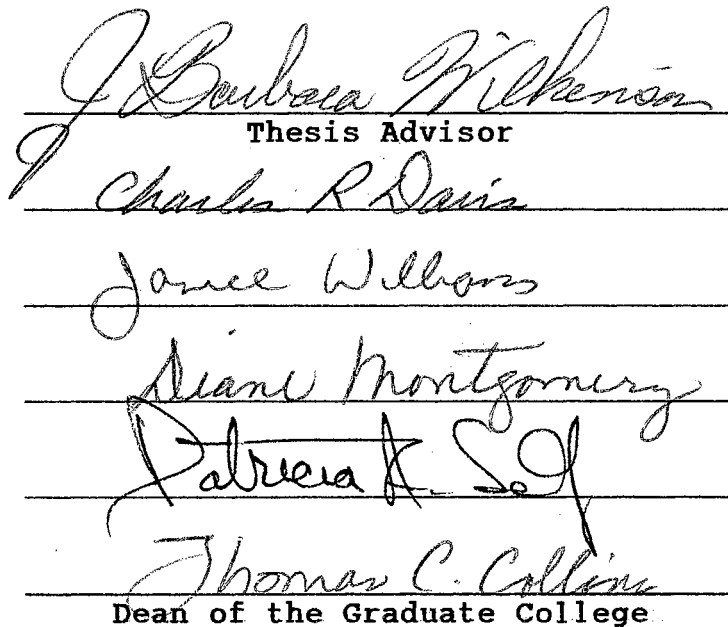 J Barbara Wilkinson
Thesis Advisor
Charles R Davis
Janice Williams
Diane Montgomery
Patricia K. Self
Thomas C. Collins
Dean of the Graduate College